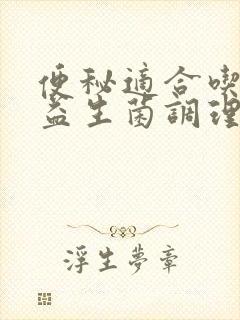 便秘適合喫
益生菌調理
浮生夢章